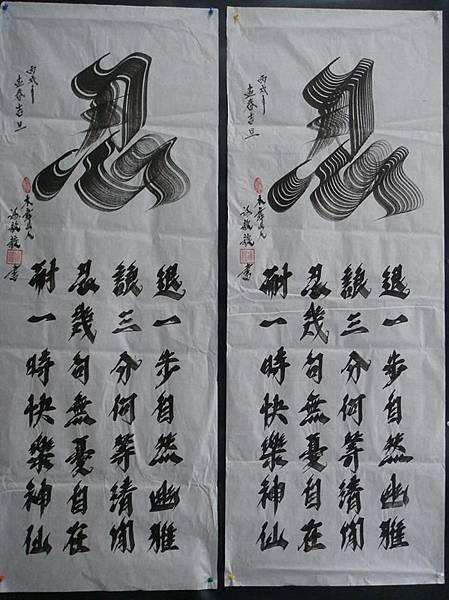 忍
丙戌年
吉旦
書
退一步自然幽雅
讓三分何等清閒
忍幾句無憂自在
耐一時快樂神仙
忍
丙戌年
吉旦
書
退一步自然幽雅
讓三分何等清閒
忍幾句無憂自在
耐一時快樂神仙